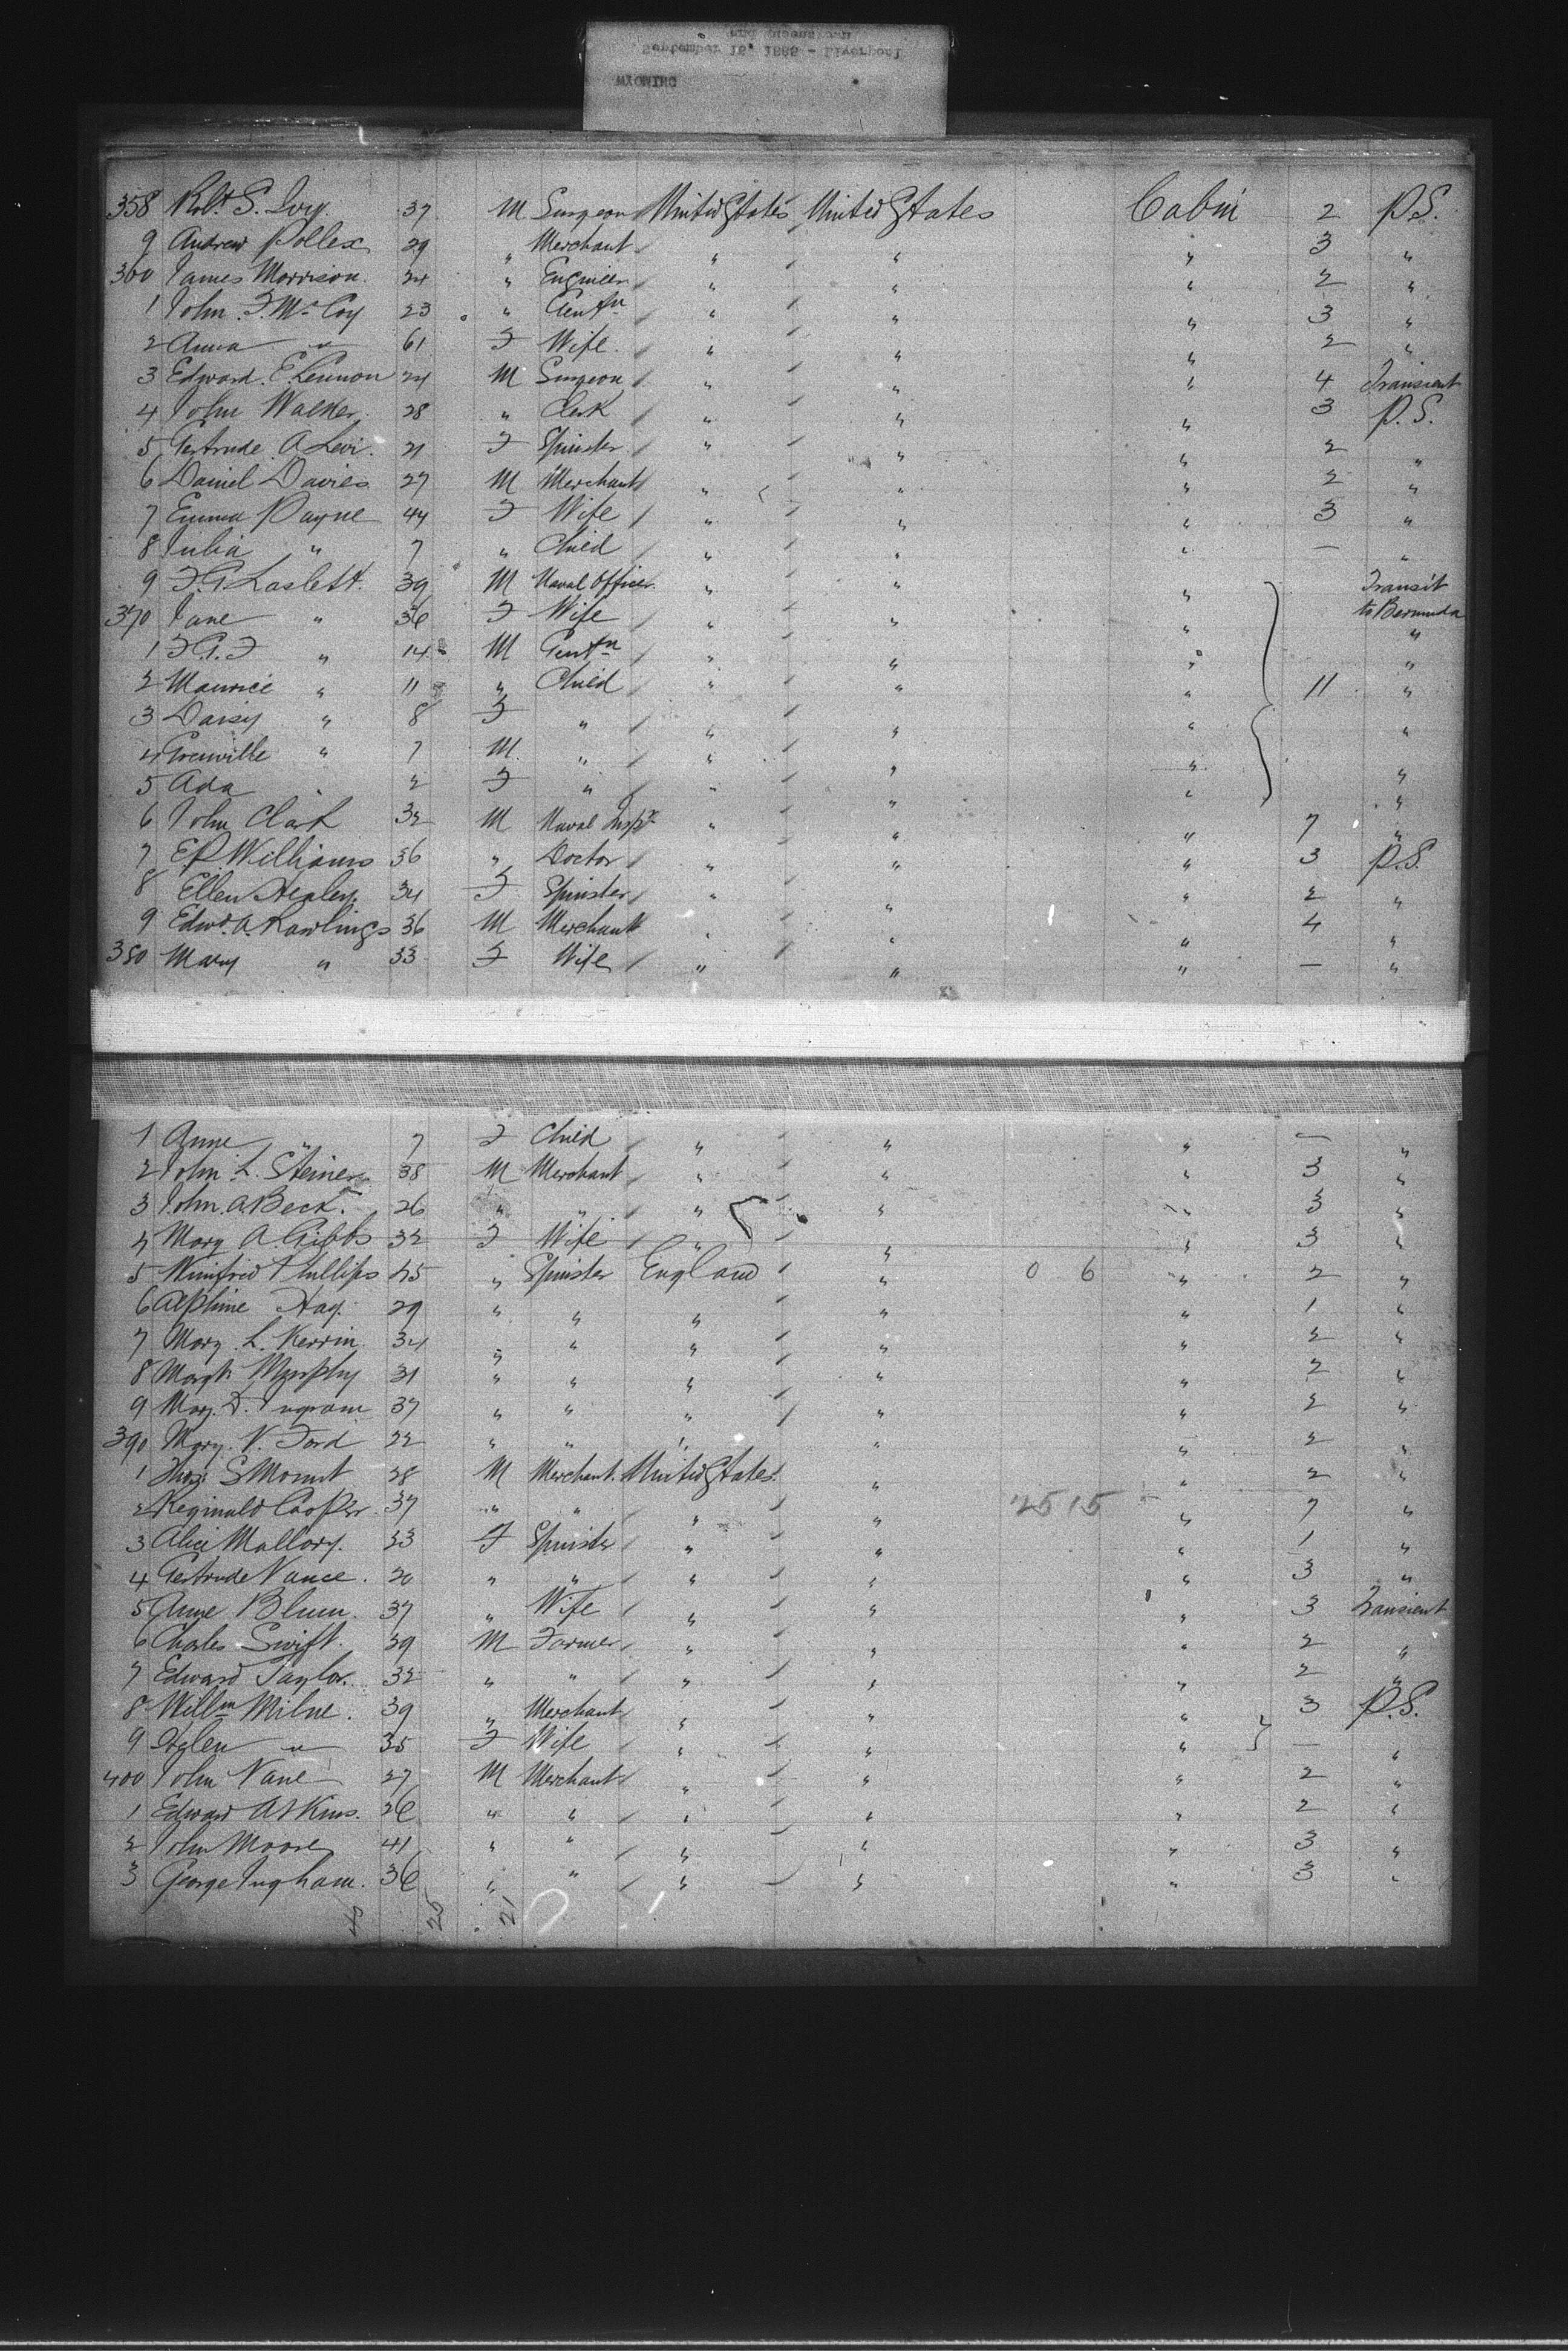 WYOMING
September 15, 1888 - Liverpool
and Queenstown
358 Robt S. Ivy. 37 M Surgeon United States United States Cabin 2 P.S.
9 Andrew Pollex 29 " Merchant " " " 3 "
360 James Morrison. 24 " Engineer " " " 2 "
1 John F. McCoy 23 " Gentn " " " 3 "
2 Anna " 61 F Wife " " " 2 "
3 Edward E. Lennon 24 M Surgeon " " " 4 Transient
4 John Walker 28 " Clerk " " " 3 P.S.
5 Gertrude A Levi. 21 F Spinster " " " 2 "
6 Daniel Davies 27 M Merchant " " " 2 "
7 Emma Payne 44 F Wife " " " 3 "
8 Julia " 7 " Child " " " — "
9 F G Laslett. 39 M Naval Officer " " " Transit
370 Jane " 36 F Wife " " " to Bermuda
1 F.G.F " 14 M Gentn " " " "
2 Maurice " 11 " Child " " " 11 "
3 Daisy " 8 F " " " " "
4 Grenville " 7 M. " " " " "
5 Ada " 2 F " " " " "
6 John Clark 32 M Naval Inspr " " " 7 "
7 E.P. Williams 36 " Doctor " " " 3 P.S.
8 Ellen Healey. 34 F Spinster " " " 2 "
9 Edwd. A. Rawlings 36 M Merchant " " " 4 "
380 Mary " 33 F Wife " " " — "
1 Anne " 7 F Child " " " — "
2 John L. Steiner 38 M Merchant " " " 3 "
3 John A Beck. 26 " " " " " 3 "
4 Mary A. Gibbs 32 F Wife " " " 3 "
5 Winifred Phillips 45 " Spinster England " 0 6 " 2 "
6 Alphine Hay. 29 " " " " " 1 "
7 Mary L. Kerrin. 34 " " " " " 2 "
8 Margt Murphy 31 " " " " " 2 "
9 Mary D. Ingram 37 " " " " " 2 "
390 Mary. V. Ford 22 " " " " " 2 "
1 Thos S Mount 28 M Merchant. United States. " " 2 "
2 Reginald Cooper. 37 " " " " 25 15 " 7 "
3 Alice Mallory. 23 F Spinster " " " 1 "
4 Gertrude Vance. 20 " " " " " 3 "
5 Anne Blum. 37 " Wife " " " 3 Transient
6 Charles Swift. 39 M Farmer " " " 2 "
7 Edward Taylor. 32 " " " " " 2 "
8 Willm Milne. 39 " Merchant " " " 3 P.S.
9 Helen " 35 F Wife " " " — "
400 John Vane 27 M Merchant " " " 2 "
1 Edward Atkins. 26 " " " " " 2 "
2 John Moore 41 " " " " " 3 "
3 George Ingham. 36 " " " " " 3 "
25 21